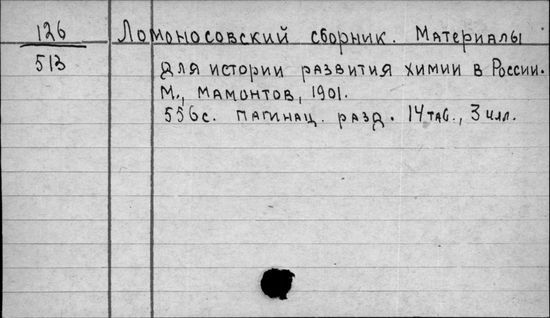 126
513
Ломоносовский сборник. Материалы
для истории развития химии в России.
М., Мамонтов, 1901.
556с. пагинац. разд. 14 таб., 3 илл.